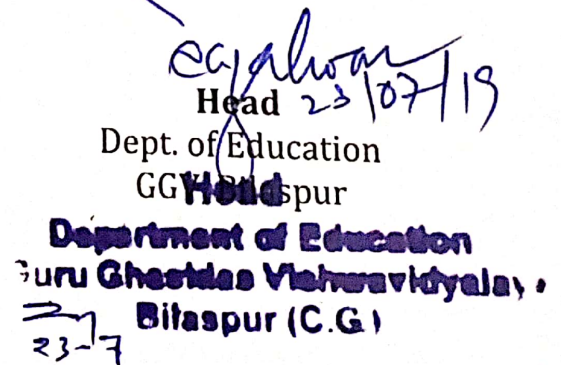 23/07/19
Head
Dept. of Education
GGV, Bilaspur
Head
Department of Education
Guru Ghasidas Vishwavidyalaya
Bilaspur (C.G.)
23-7